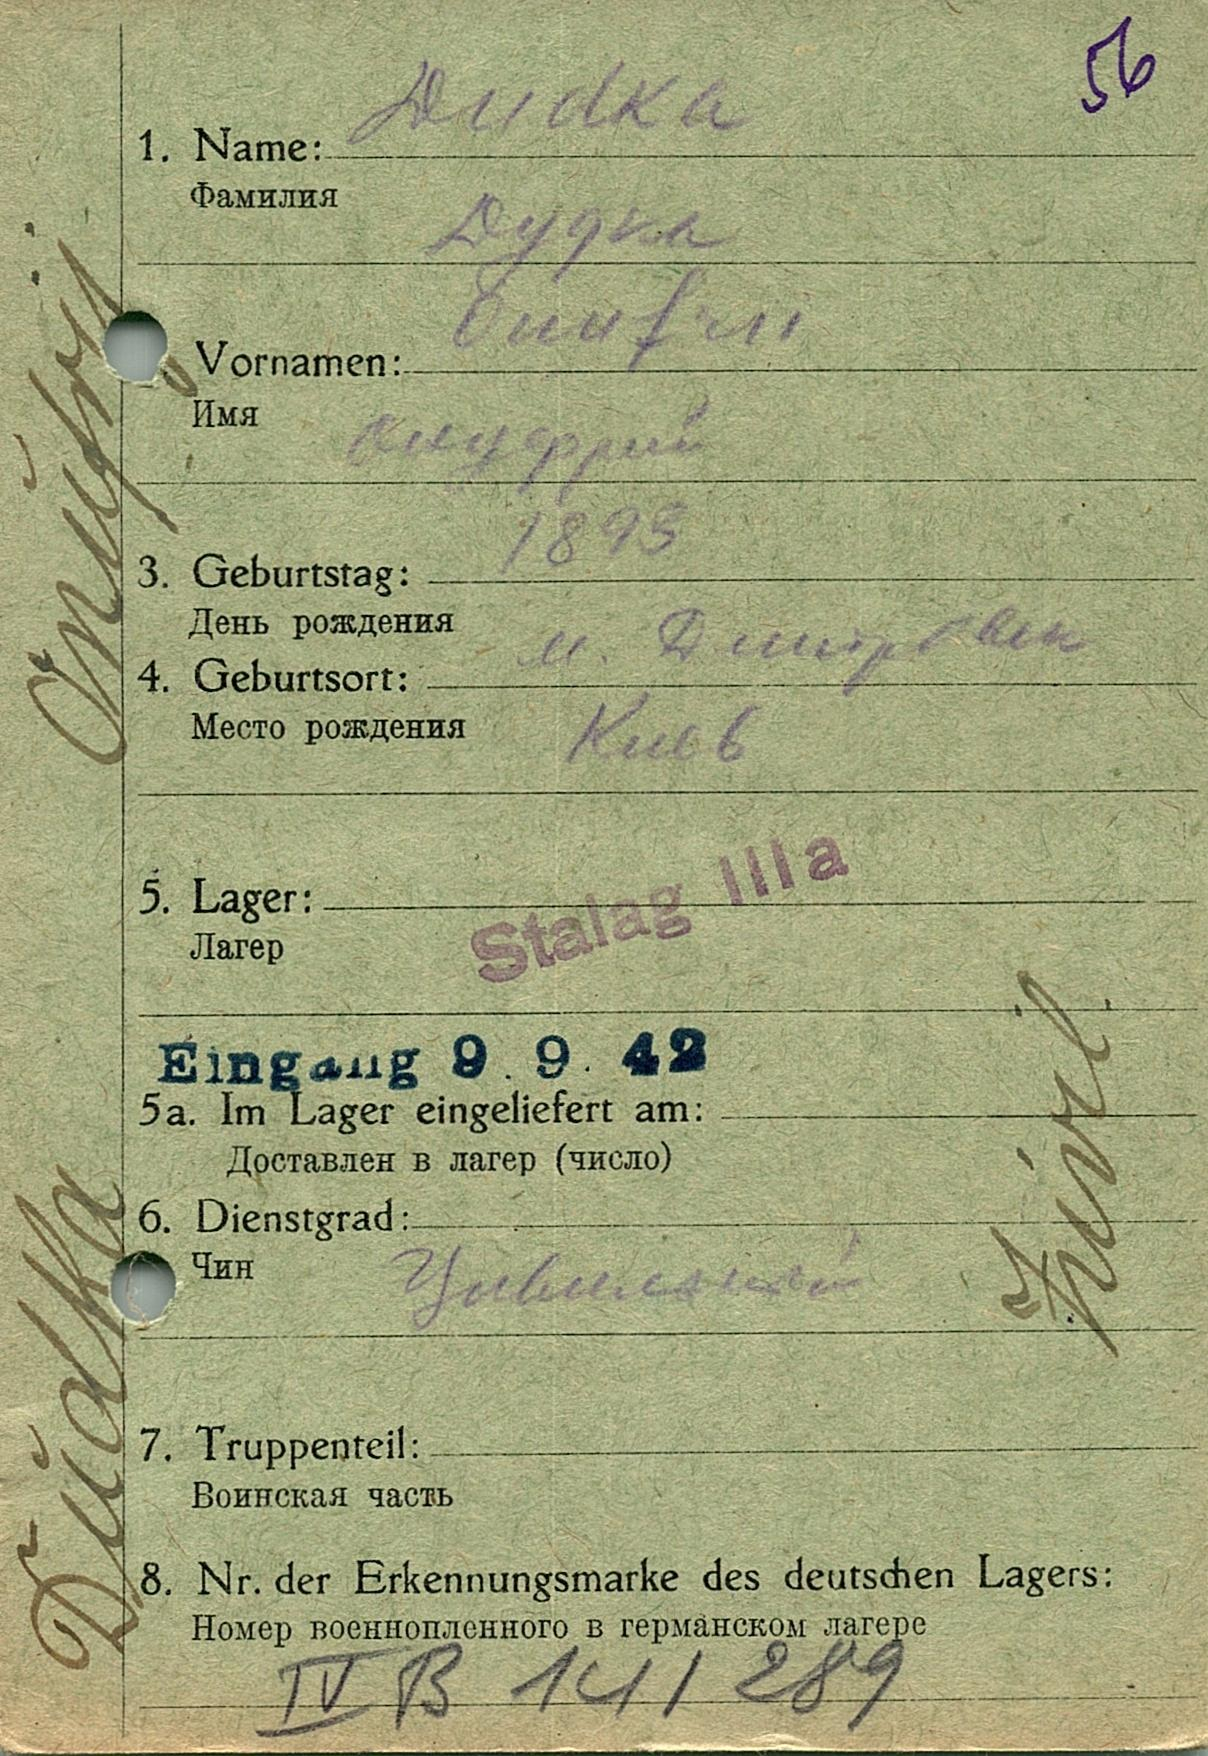 56
Dudka
1. Name:
Фамилия
Дудка
Onufri
Vornamen:
Имя
Онуфрий
1895
3. Geburtstag:
День рождения
м. Дмитровск
4. Geburtsort:
Место рождения
Киев
5. Lager:
Лагер
Stalag IIIa
Eingang 9. 9. 42
5a. Im Lager eingeliefert am:
Доставлен в лагер (число)
6. Dienstgrad:
Чин
Цивильный
7. Truppenteil:
Воинская часть
8. Nr. der Erkennungsmarke des deutschen Lagers:
Номер военнопленного в германском лагере
IV B 141 289
Dŭdka Onŭfrij
Zivil.